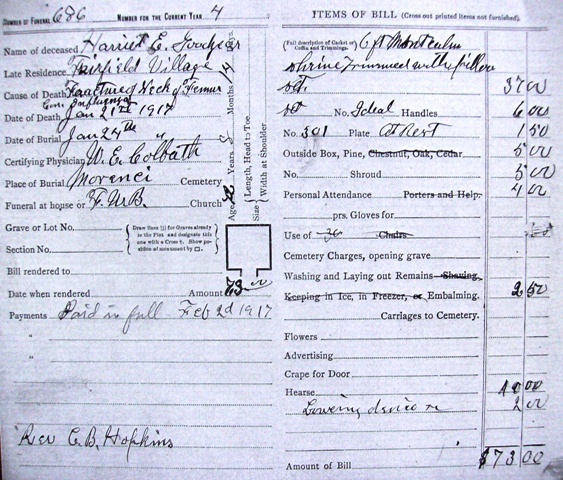 NUMBER OF FUNERAL 686 NUMBER FOR THE CURRENT YEAR 4
Name of deceased Harriet E. Goodyear
Late Residence Fairfield Village
Cause of Death Fracture of Neck of Femur
Date of Death Jan 21st 1917
Date of Burial Jan 24th "
Certifying Physician W. E. Colbath
Place of Burial Morenci Cemetery
Funeral at house or F. U. B. Church
Grave or Lot No.
Section No.
Draw lines || for Graves already in the Plot and designate this one with a Cross †. Show position of monument by □.
Bill rendered to
Date when rendered Amount 73.00
Payments Paid in full Feb 2d 1917
"
"
Rev C. B. Hopkins
Age Years Months
Size { Length, Head to Toe. Width at Shoulder
ITEMS OF BILL (Cross out printed items not furnished).
(Full description of Casket or Coffin and Trimmings. 6 ft Montcalm
shrine trimmed with pillow
set. 37 00
set No. Ideal Handles 6 00
No. 301 Plate At Rest 1 50
Outside Box, Pine, Chestnut, Oak, Cedar. 5 00
No. Shroud 5 00
Personal Attendance Porters and Help. 4 00
prs. Gloves for
Use of 36 Chairs
Cemetery Charges, opening grave
Washing and Laying out Remains Shaving.
Keeping in Ice, in Freezer, or Embalming. 2 50
Carriages to Cemetery.
Flowers
Advertising
Crape for Door
Hearse 10 00
Lowering device 2 00
Amount of Bill $73 00